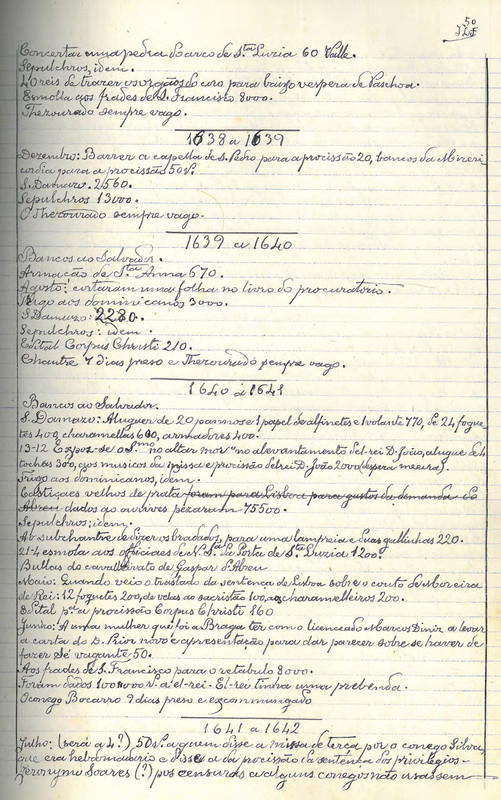 50
Concertar uma pedra do arco de S.ta Luzia 60 Valle.
Sepulchros, idem.
40 reis de trazer os orgãos do coro para baixo vespera de Paschoa.
Esmolla aos frades de S. Francisco 8000.
Thezourado sempre vago.
1638 a 1639
Dezembro: Barrer a capella de S. Pedro para a procissão 20, bancos da Mizeri
cordia para a procissão 50 r.
S. Damazo. 2560.
Sepulchros 13000.
O Thezourado sempre vago.
1639 a 1640
Bancos ao Salvador.
Armação de S.ta Anna 670.
Agosto: cortaram uma folha no livro do procuratorio.
Trigo aos dominicanos 3000.
S. Damazo: 2280.
Sepulchros: idem.
Edital Corpus Christi 210.
Chantre 7 dias preso e Thezourado sempre vago.
1640 a 1641
Bancos ao Salvador.
S. Damazo: Aluguer de 20 pannos e 1 papel de alfinetes e 1 volante 770, de 24 fogue
tes 400, charamellas 600, armadores 400.
13-12 Expoz-de o S.mo no altar mor "no alevantamento del-rei D. João, alugue de 4
tochas 300, aos musicos da missa e procissão del rei D. João 2000 (despeza meeira).
Trigo aos dominicanos, idem.
Castiçaes velhos de prata foram para Lisboa para gastos da demanda do
Abreu dados ao ourives pezaram 75500.
Sepulchros; idem.
Ab subchantre de dizer os bradados, para uma lampreia e duas gallinhas 220.
21-4 esmola aos officiaes de N. S.ra da Porta de S.ta Luzia 1200.
Bullas do canonicato de Gaspar d'Abreu
Maio: Quando veio o traslado da sentença de Lisboa sobre o couto de Moreira
de Rei: 12 foguetes 200, de velas ao sacristão 100, aos charamelleiros 200.
Edital p.a a procissão Corpus Christi 160
Junho: A uma mulher que foi a Braga ter com o licenceado Marcos Diniz a levar
a carta do D. Prior novo e apresentação para dar parecer sobre se haver de
fazer Sé vagante, 50.
Aos frades de S. Francisco para o retabulo 8000.
Foram dados 100:000 r.s a el-rei. El-rei tinha uma prebenda.
O conego Bocarro 7 dias preso e excommungado
1641 a 1642
Julho: (será a 4?) 50 r.s a quem disse a missa de terça por o conego Silva,
que era hebdomadario e disse a da procissão da sentença dos privilegios.
Jeronymo Soares (?) pos censuras a alguns conegos não usassem